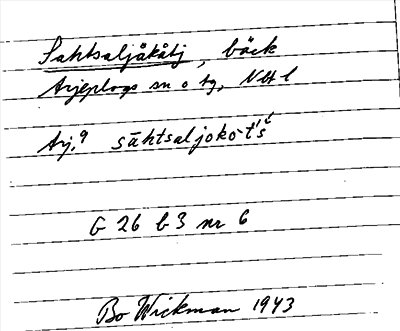 Sahtsaljåkåtj, bäck
Arjeplogs sn o tg, Nbt l
Arj.9 sāhtsaljoko-t'ś
G 26 b 3 nr 6
Bo Wickman 1943